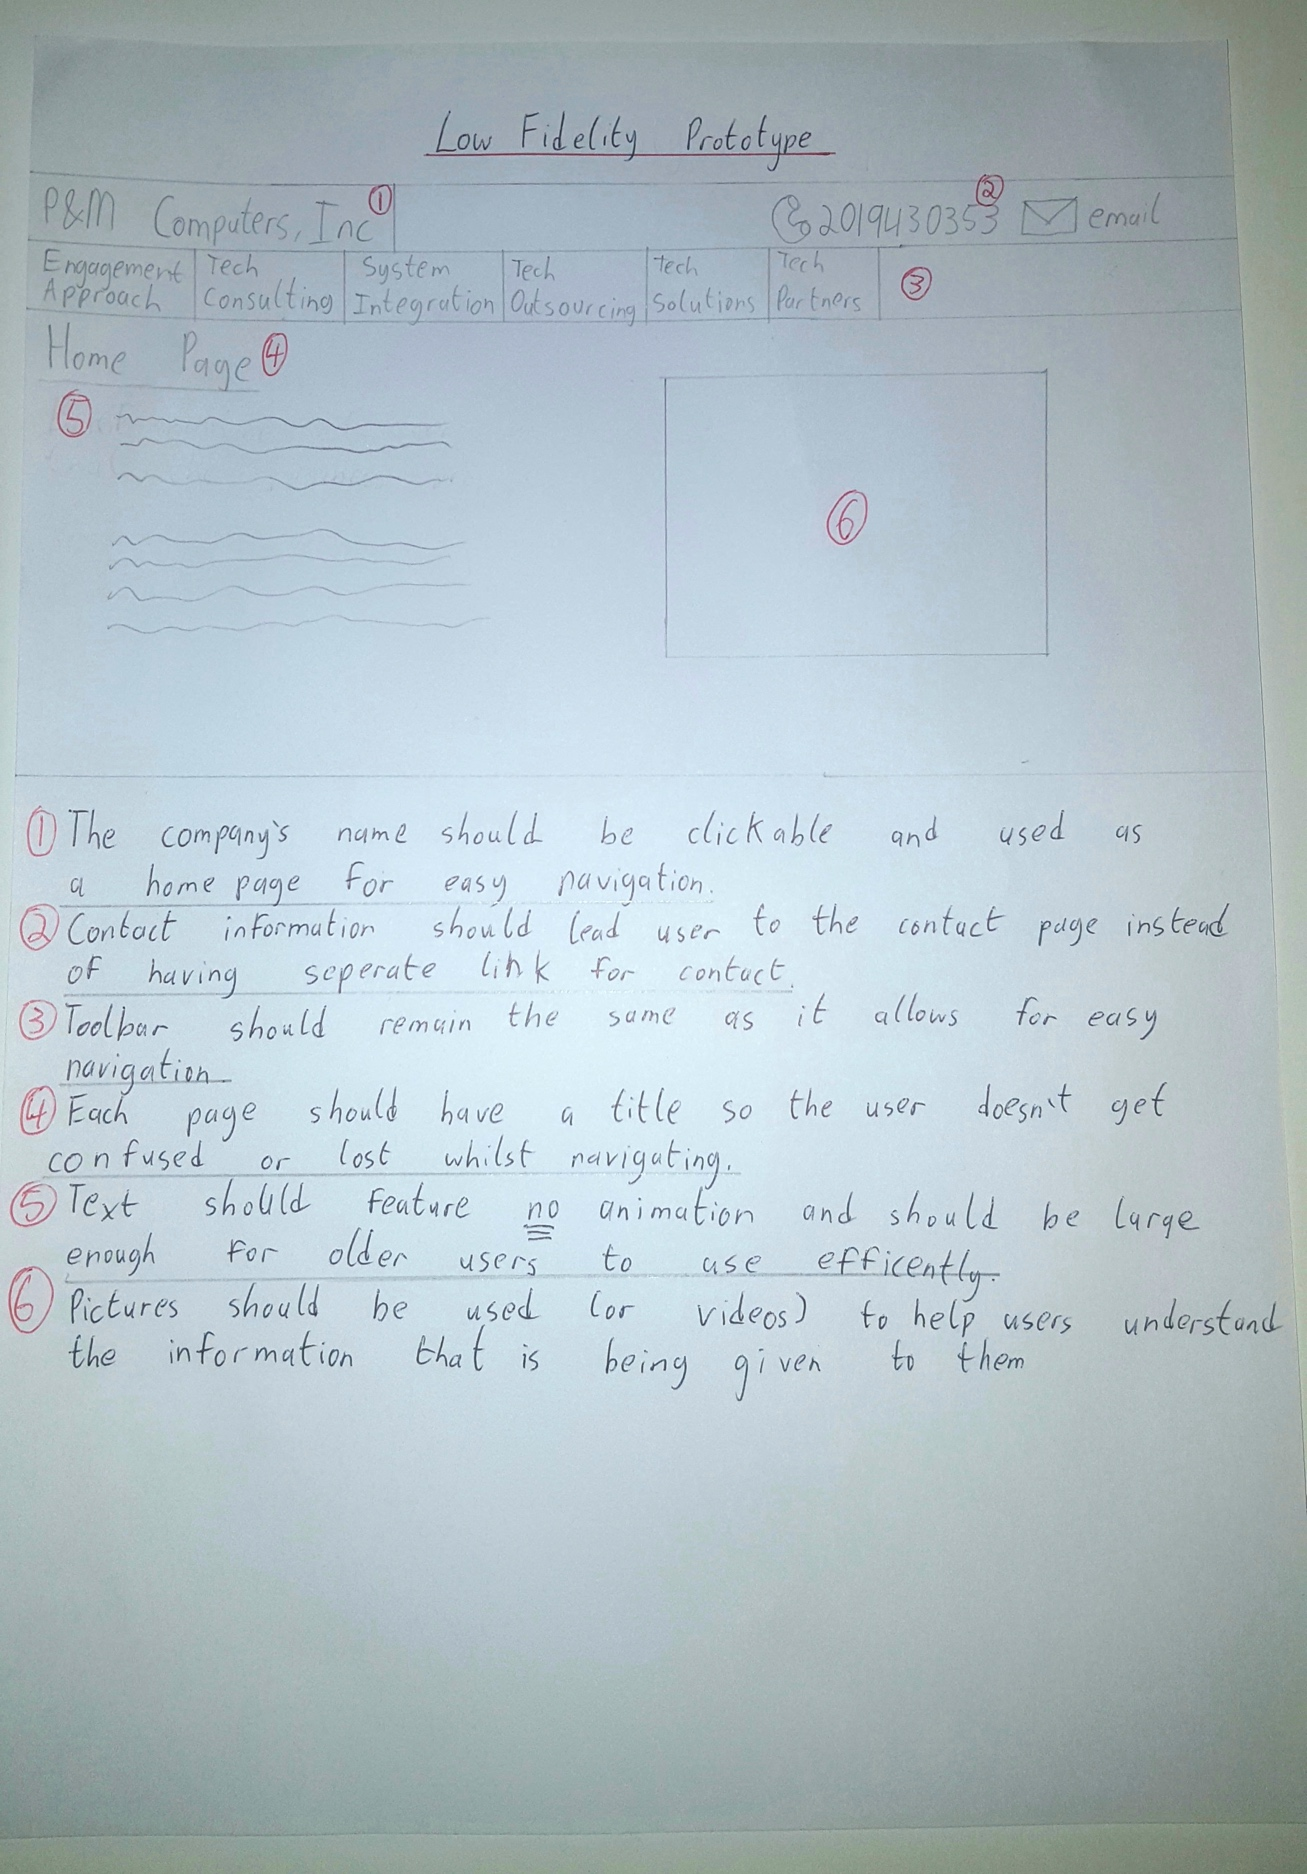 Low Fidelity Prototype
P&M Computers, Inc ① 2019430353 ② email
Engagement Approach Tech Consulting System Integration Tech Outsourcing Tech Solutions Tech Partners ③
Home Page ④
⑤
⑥
① The company's name should be clickable and used as
a home page for easy navigation.
② Contact information should lead user to the contact page instead
of having seperate link for contact.
③ Toolbar should remain the same as it allows for easy
navigation
④ Each page should have a title so the user doesn't get
confused or lost whilst navigating.
⑤ Text should feature no animation and should be large
enough for older users to use efficently.
⑥ Pictures should be used (or videos) to help users understand
the information that is being given to them